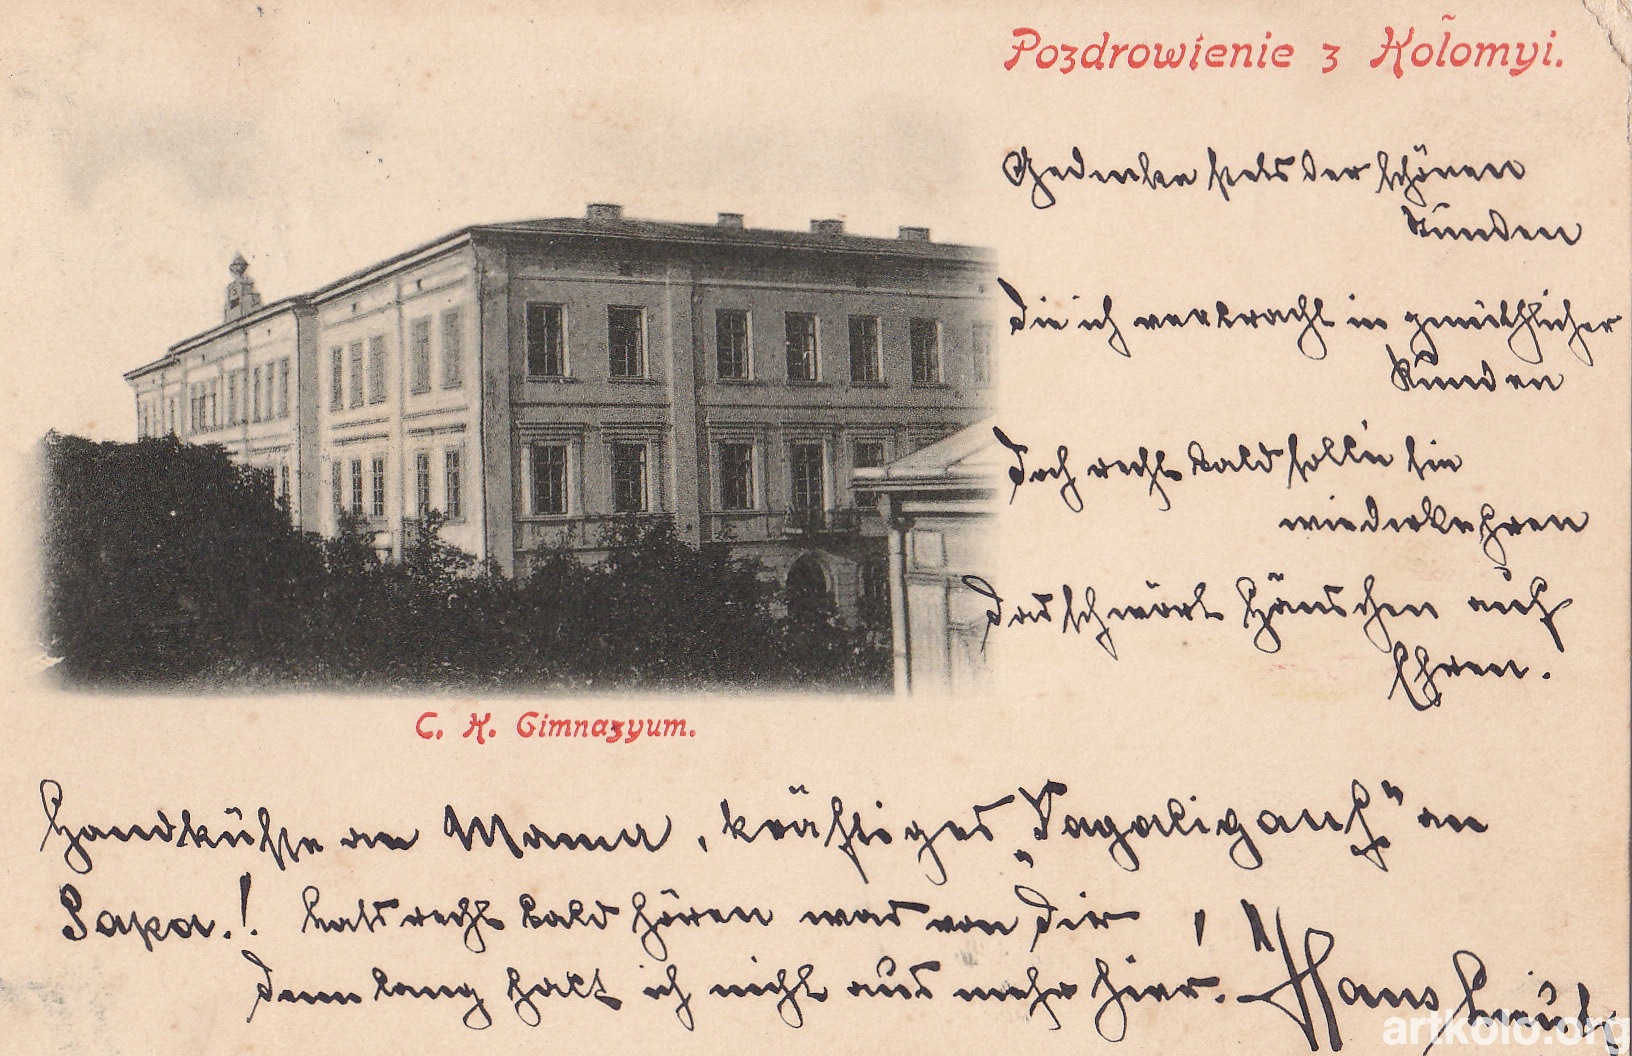 Pozdrowienie z Kołomyi.
Gedenke stets der schönen
Stunden
Die ich verbracht in gemüthlicher
Runden
Doch recht bald sollen sie
wiederkehren
Das schwört Hänschen auf
Ehren.
C. K. Gimnazyum.
Handküsse an Mama, kräftiges „ "an
Papa.! Laß recht bald hören was von Dir
Denn lang halt ich nicht aus mehr hier. Hans
artkolo.org